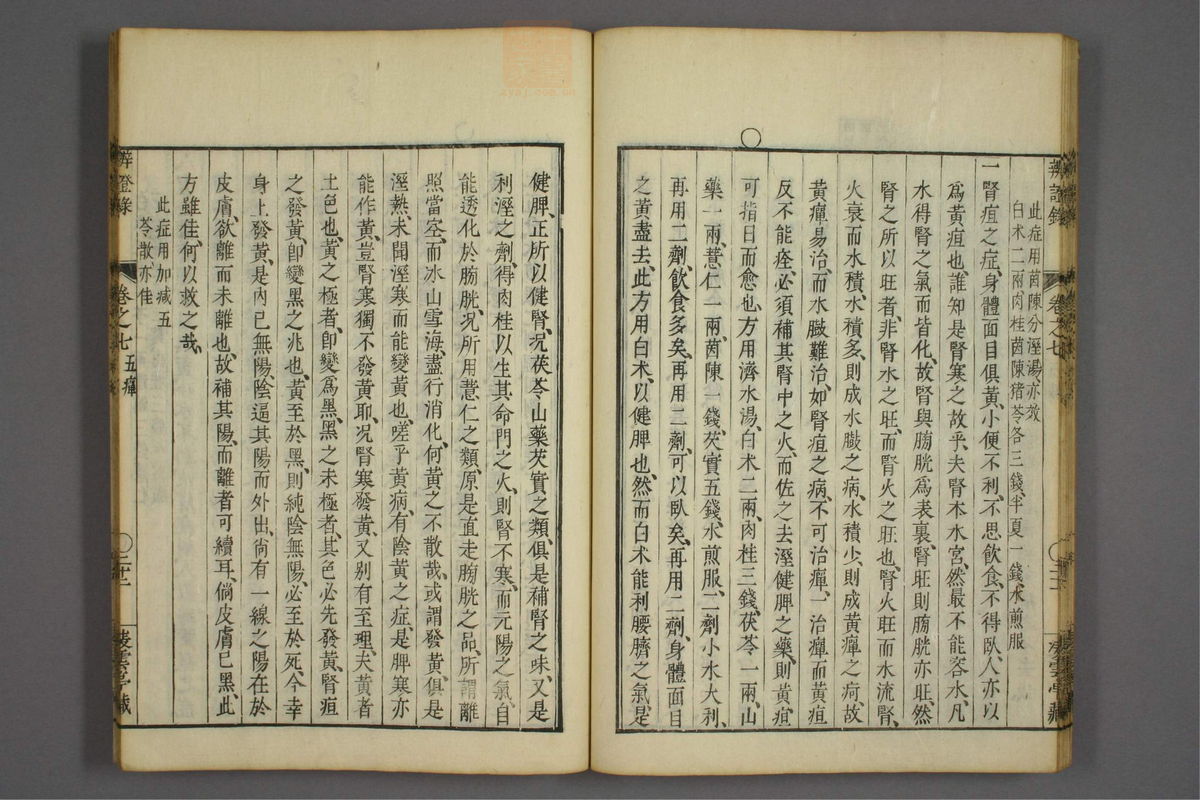 此症用茵陳分溼湯、亦效
白术二兩肉桂茵陳猪苓各三錢、半夏一錢、水煎服
一腎疸之症、身體面目俱黃、小便不利、不思飲食、不得臥、人亦以
爲黃疸也、誰知是腎寒之故乎、夫腎本水宮、然最不能容水、凡
水得腎之氣而皆化、故腎與膀胱爲表裏、腎旺則膀胱亦旺、然
腎之所以旺者、非腎水之旺、而腎火之旺也、腎火旺而水流、腎
火衰而水積、水積多、則成水臌之病、水積少、則成黃癉之疴、故
黃癉易治、而水臌難治、如腎疸之病、不可治癉、一治癉而黃疸
反不能痊、必須補其腎中之火、而佐之去溼健脾之藥、則黃疸
可指日而愈也、方用濟水湯、白术二兩、肉桂三錢、茯苓一兩、山
藥一兩、薏仁一兩、茵陳一錢、芡實五錢、水煎服、二劑小水大利、
再用二劑、飲食多矣、再用二劑、可以臥矣、再用二劑、身體面目
之黃盡去、此方用白术、以健脾也、然而白术能利腰臍之氣、是
健脾、正所以健腎、况茯苓山藥芡實之類、俱是補腎之味、又是
利溼之劑、得肉桂以生其命門之火、則腎不寒、而元陽之氣、自
能透化於膀胱、况所用薏仁之類、原是直走膀胱之品、所謂離
照當空、而冰山雪海、盡行消化、何黃之不散哉、或謂發黃、俱是
溼熱、未聞溼寒而能變黃也、嗟乎黃病、有陰黃之症、是脾寒亦
能作黃、豈腎寒獨不發黃耶、况腎寒發黃、又别有至理、夫黃者
土色也、黃之極者、卽變爲黑、黑之未極者、其色必先發黃、腎疸
之發黃、卽變黑之兆也、黃至於黑、則純陰無陽、必至於死、今幸
身上發黃、是內已無陽、陰逼其陽而外出、尚有一線之陽、在於
皮膚、欲離而未離也、故補其陽、而離者可續耳、倘皮膚已黑、此
方雖佳、何以救之哉、
此症用加减五
苓散亦佳
辨證錄
卷之七
五癉